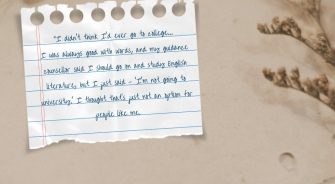 "I didn't think I'd ever go to college...
I was always good with words, and my guidance
counsellor said I should go on and study English
literature, but I just said - 'I'm not going to
university.' I thought that's just not an option for
people like me.